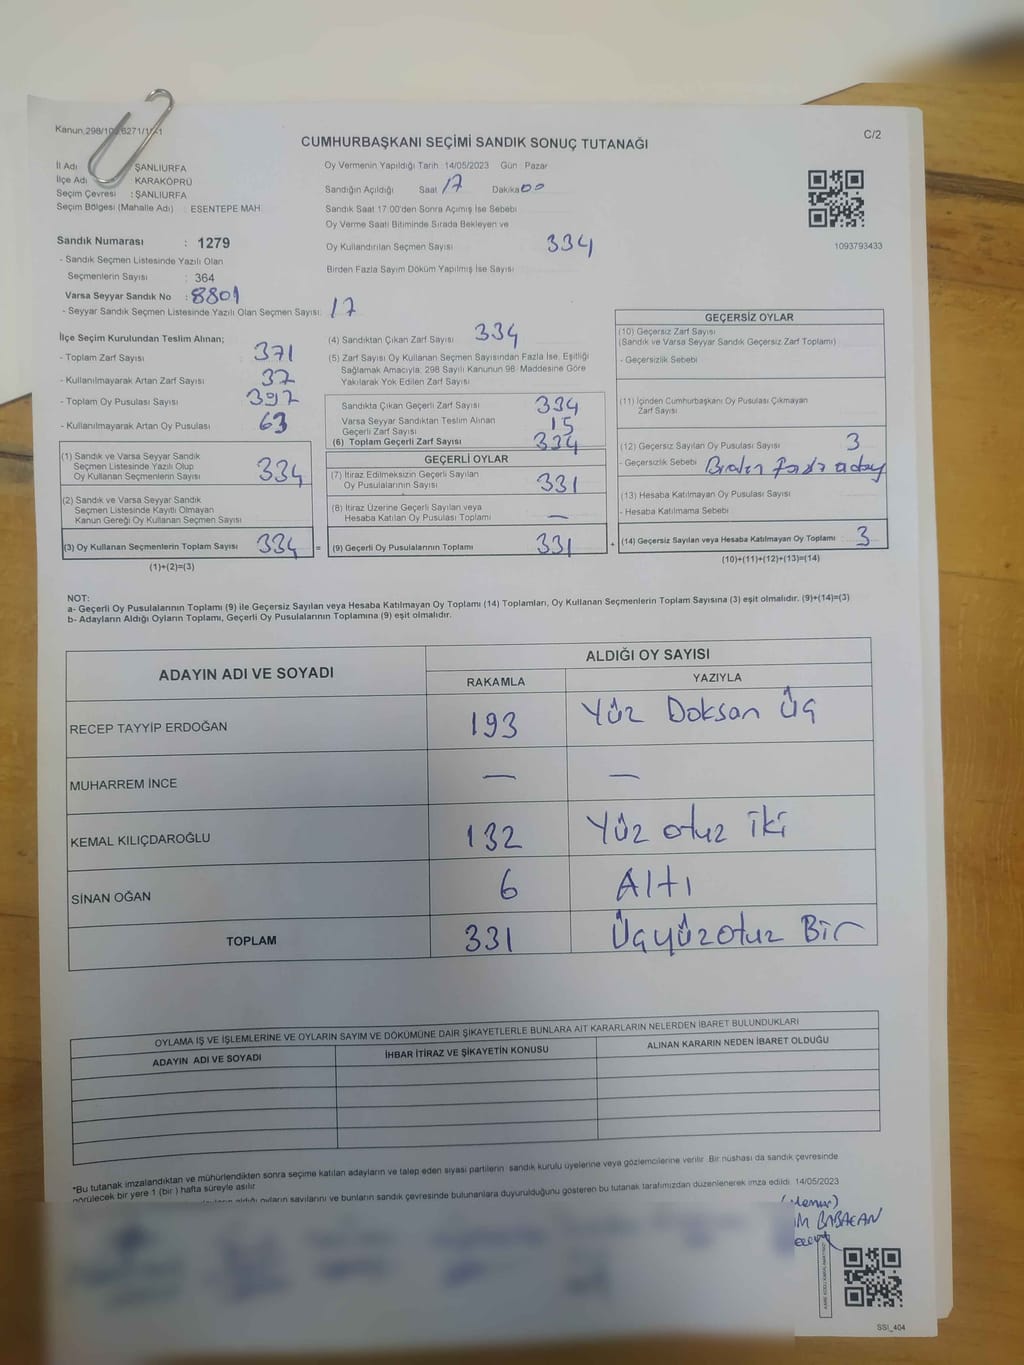 Kanun,298/105,6271/
C/2
CUMHURBAŞKANI SEÇİMİ SANDIK SONUÇ TUTANAĞI
İl Adı : ŞANLIURFA
İlçe Adı : KARAKÖPRÜ
Seçim Çevresi : ŞANLIURFA
Seçim Bölgesi (Mahalle Adı) : ESENTEPE MAH.
Oy Vermenin Yapıldığı Tarih :14/05/2023 Gün : Pazar
Sandığın Açıldığı Saat 17 Dakika 00
Sandık Saat 17:00'den Sonra Açımış İse Sebebi
Oy Verme Saati Bitiminde Sırada Bekleyen ve
Oy Kullandırılan Seçmen Sayısı 334
Birden Fazla Sayım Döküm Yapılmış İse Sayısı
1093793433
Sandık Numarası : 1279
- Sandık Seçmen Listesinde Yazılı Olan
Seçmenlerin Sayısı : 364
Varsa Seyyar Sandık No : 8801
- Seyyar Sandık Seçmen Listesinde Yazılı Olan Seçmen Sayısı: 17
İlçe Seçim Kurulundan Teslim Alınan;
- Toplam Zarf Sayısı 371
- Kullanılmayarak Artan Zarf Sayısı 37
- Toplam Oy Pusulası Sayısı 397
- Kullanılmayarak Artan Oy Pusulası 63
(1) Sandık ve Varsa Seyyar Sandık
Seçmen Listesinde Yazılı Olup
Oy Kullanan Seçmenlerin Sayısı 334
(2) Sandık ve Varsa Seyyar Sandık
Seçmen Listesinde Kayıtlı Olmayan
Kanun Gereği Oy Kullanan Seçmen Sayısı
(3) Oy Kullanan Seçmenlerin Toplam Sayısı 334 =
(1)+(2)=(3)
(4) Sandıktan Çıkan Zarf Sayısı 334
(5) Zarf Sayısı Oy Kullanan Seçmen Sayısından Fazla İse, Eşitliği
Sağlamak Amacıyla, 298 Sayılı Kanunun 98. Maddesine Göre
Yakılarak Yok Edilen Zarf Sayısı
Sandıkta Çıkan Geçerli Zarf Sayısı 334
Varsa Seyyar Sandıktan Teslim Alınan
Geçerli Zarf Sayısı 15
(6) Toplam Geçerli Zarf Sayısı 334
GEÇERLİ OYLAR
(7) İtiraz Edilmeksizin Geçerli Sayılan
Oy Pusulalarının Sayısı 331
(8) İtiraz Üzerine Geçerli Sayılan veya
Hesaba Katılan Oy Pusulası Toplamı —
(9) Geçerli Oy Pusulalarının Toplamı 331 +
GEÇERSİZ OYLAR
(10) Geçersiz Zarf Sayısı
(Sandık ve Varsa Seyyar Sandık Geçersiz Zarf Toplamı)
- Geçersizlik Sebebi
(11) İçinden Cumhurbaşkanı Oy Pusulası Çıkmayan
Zarf Sayısı
(12) Geçersiz Sayılan Oy Pusulası Sayısı 3
- Geçersizlik Sebebi Birden fazla aday
(13) Hesaba Katılmayan Oy Pusulası Sayısı
- Hesaba Katılmama Sebebi
(14) Geçersiz Sayılan veya Hesaba Katılmayan Oy Toplamı 3
(10)+(11)+(12)+(13)=(14)
NOT:
a- Geçerli Oy Pusulalarının Toplamı (9) ile Geçersiz Sayılan veya Hesaba Katılmayan Oy Toplamı (14) Toplamları, Oy Kullanan Seçmenlerin Toplam Sayısına (3) eşit olmalıdır. (9)+(14)=(3)
b- Adayların Aldığı Oyların Toplamı, Geçerli Oy Pusulalarının Toplamına (9) eşit olmalıdır.
ADAYIN ADI VE SOYADI ALDIĞI OY SAYISI
RAKAMLA YAZIYLA
RECEP TAYYİP ERDOĞAN 193 Yüz Doksan Üç
MUHARREM İNCE — —
KEMAL KILIÇDAROĞLU 132 Yüz otuz iki
SİNAN OĞAN 6 Altı
TOPLAM 331 Üçyüzotuz Bir
OYLAMA İŞ VE İŞLEMLERİNE VE OYLARIN SAYIM VE DÖKÜMÜNE DAİR ŞİKAYETLERLE BUNLARA AİT KARARLARIN NELERDEN İBARET BULUNDUKLARI
ADAYIN ADI VE SOYADI İHBAR İTİRAZ VE ŞİKAYETİN KONUSU ALINAN KARARIN NEDEN İBARET OLDUĞU
*Bu tutanak imzalandıktan ve mühürlendikten sonra seçime katılan adayların ve talep eden siyasi partilerin sandık kurulu üyelerine veya gözlemcilerine verilir. Bir nüshası da sandık çevresinde
görülecek bir yere 1 (bir ) hafta süreyle asılır.
aldığı oyların sayılarını ve bunların sandık çevresinde bulunanlara duyurulduğunu gösteren bu tutanak tarafımızdan düzenlenerek imza edildi. 14/05/2023
BABACAN
SSI_404